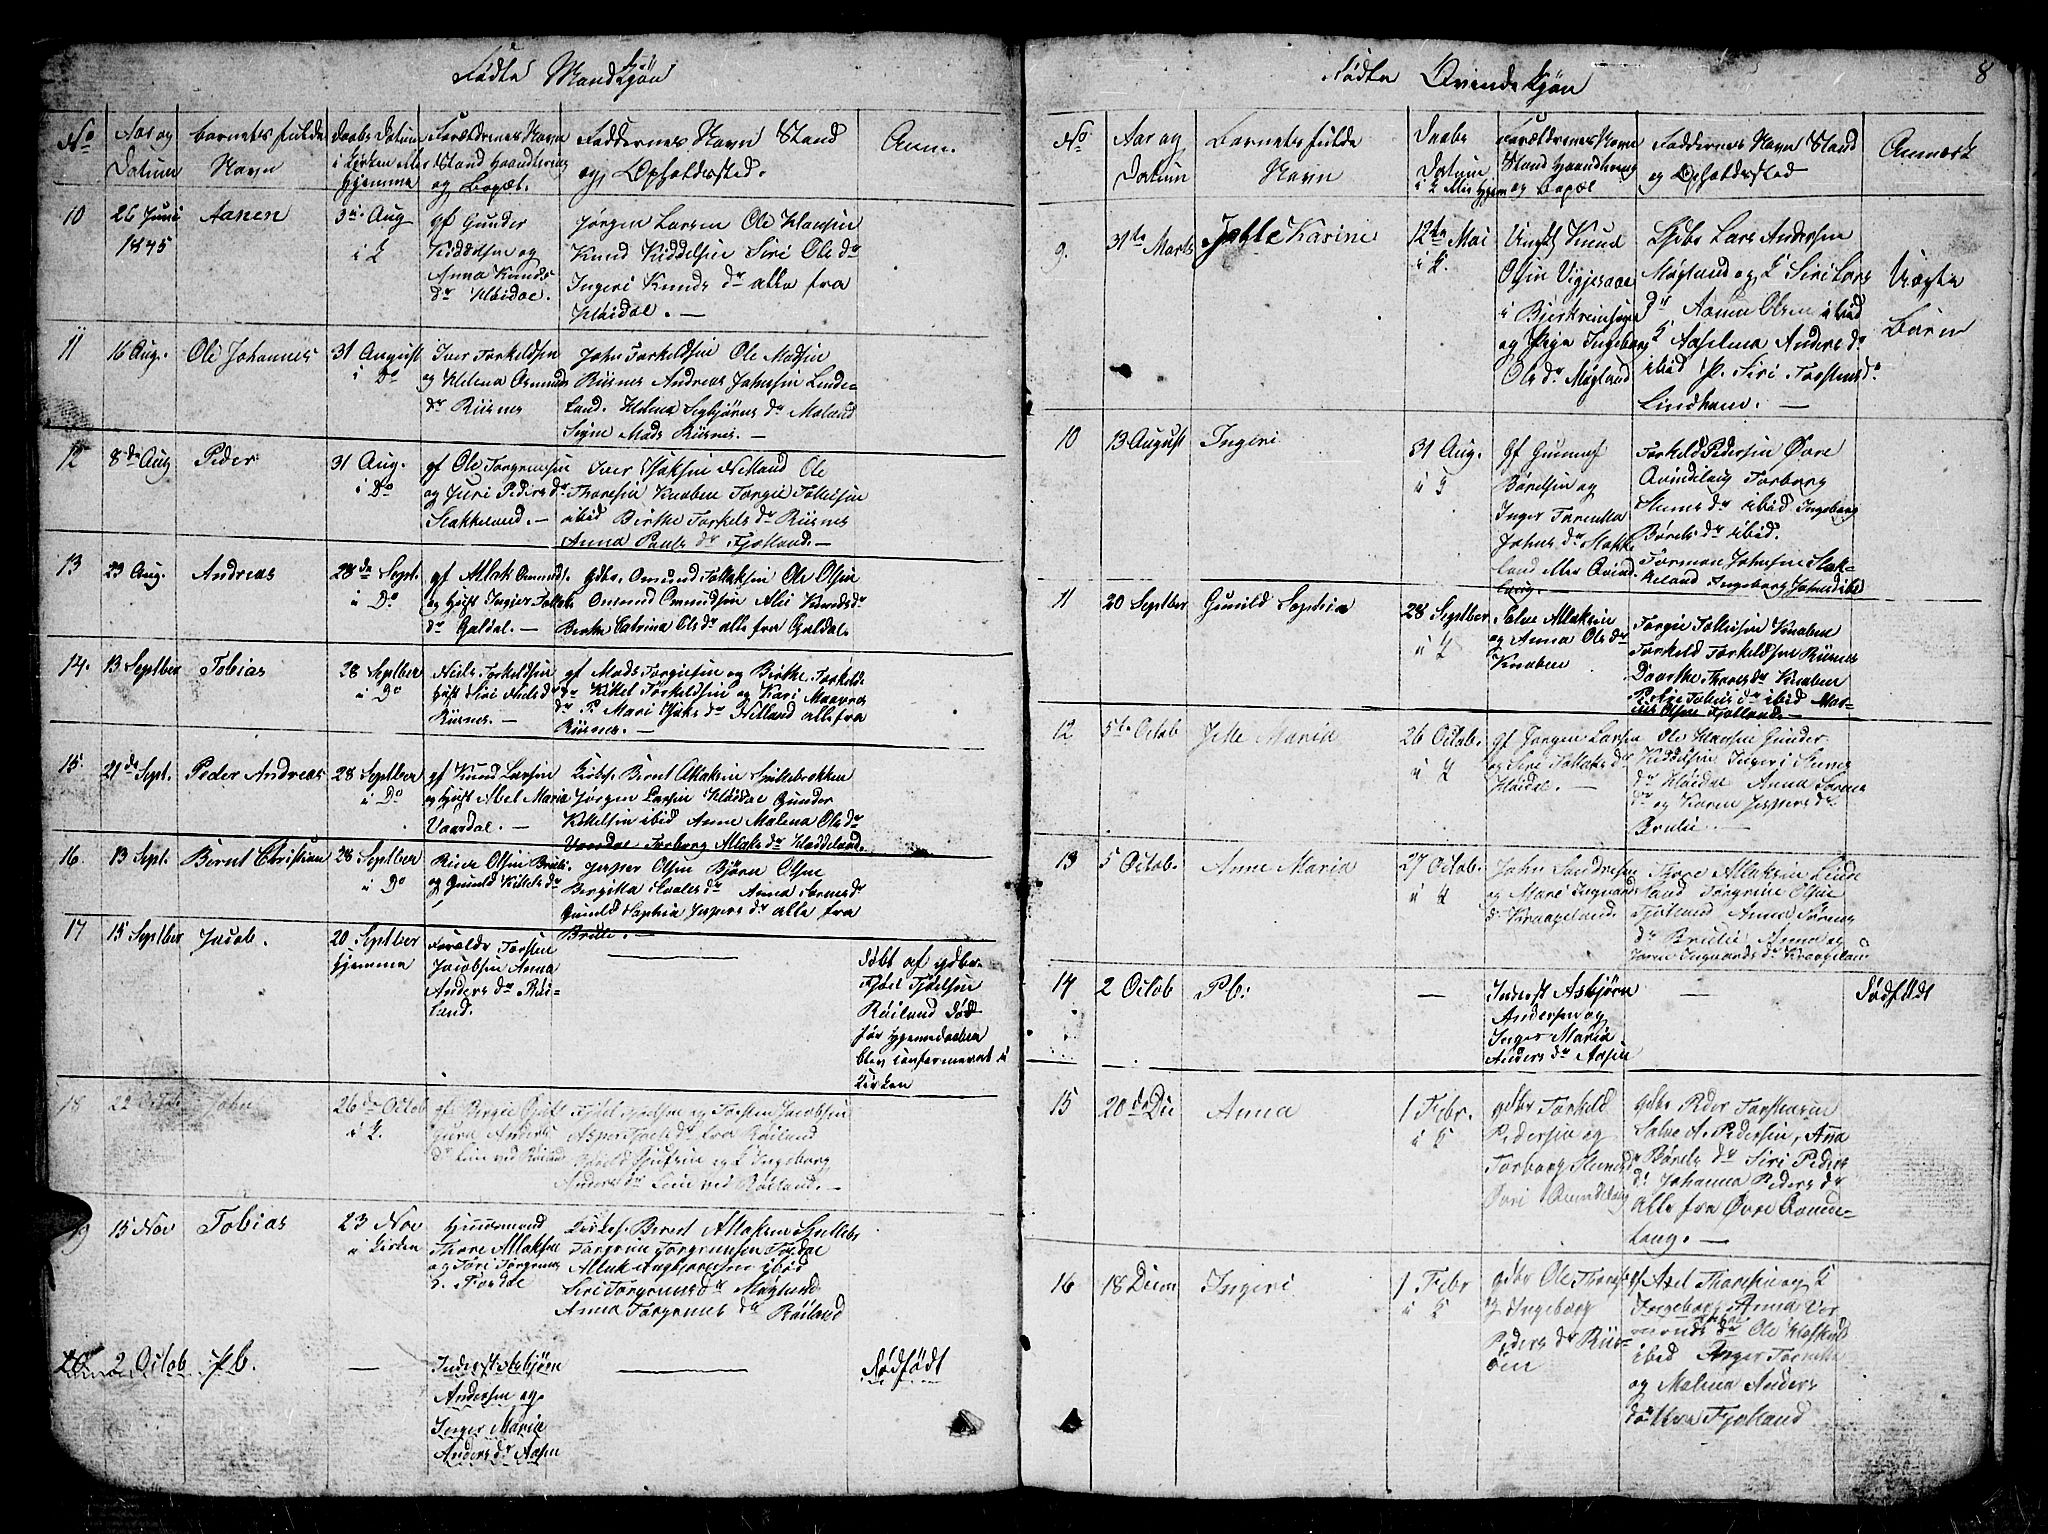 Fødte Mandkjøn
No
Aar og Datum
barnets fulde Navn
Daabs Datum i Kirken eller Hjemme
Forældrenes Navn Stand Haandtering og Bopæl.
Faddernes Navn Stand og Opholdssted.
Anm.
10
26 Juni 1845
Aanen
3die Aug i K
gf Gunder
Kiddelsen og
Anna Knuds
dr Høidal.
Jørgen Larsen Ole Hansen
Knud Kiddelsen Siri Ols dr
Ingeri Knuds dr alle fra
Høidal. —
11
16 Aug.
Ole Johannes
31 August
i Do
Iver Torkeldsen
og Helena Osmunds
dr Riisnes
John Torkeldsen Ole Madsen
Riisnes Andreas Johnsen Linde-
land. Helena Segbjørns dr Moland
Signe Mads Riisnes. —
12
8de Aug
Peder
31 Aug.
i Do
gf Ole Torgrimsen
og Juri Peders dr
Stakkeland. —
Iver Isaksen Netland Ole
Thoresen Knaben Torgie Tollevsen
ibid Birthe Torkels dr Riisnes
Anna Pauls dr Fjotland. —
13
23 Aug.
Andreas
28de Sept.
i Do
gf Atlak Osmunds.
og Hust Inger Tollaks
dr Galdal. —
Gdbr. Osmund Tollaksen Ole Olsen
Osmund Osmundsen Ali Knuds dr
Birthe Catrina Ols dr alle fra Galdal.
14.
13 Septber
Tobias
28 Septber
i Do
Niels Torkeldsen
Hust Siri Niels dr
Riisnes. —
gf Mads Torgiesen og Birthe Torkelds
dr P Kittel Torkeldsen og Kari
dr P Mari Isaks dr Netland alle fra
Riisnes. —
15.
21de Sept.
Peder Andreas
28 Septber
i Do
gf Knud Larsen
og Hust Abel Maria
Vaasdal. —
Kirkes. Bernt Atlaksen Spillebrokken
Jørgen Larsen Høidal Gunder
Kittelsen ibid Anne Malena Ols dr
Torborg Atlaks dr Haddeland.
16.
13 Sept.
Bernt Christian
28 Septber
i Do
Olsen Brulii
og Gunild Kittels dr
Jesper Olsen Bjørn Olsen
Birgitta dr Anna dr
Gunild Sophia Jespers dr alle fra
Brulii. —
17
15 Septber
Jacob.
20 Septber
Hjemma
Forældr Torsten
Jacobsen Anna
Anders dr Røi-
land.
—
Døbt af gdbr.
Fjøl Fjølsen
Røiland Død
før Hjemmedaaben
blev confirmeret i
Kirken
18
22 Octob.
John
26de Octob
i K.
Anders
dr Lien ved Røiland
Fjøld Fjøldsen og Torsten Jacobsen
dr fra Røiland
Ingeborg
Anders dr Lien ved Røiland. —
19
15 Nov
Tobias
23 Nov
i Kirken
Huusmand
Thore Atlaksen
og Torgrims
Fosdal
Kirkes. Bernt Atlaksen Spilleb.
Torgrim Torgrimsen Fosdal
Atlak ibid
Siri Torgrims dr Møgland
Anna Torgrims dr Røiland
20
2 Octob
Pb.
—
Inderst Asbjørn
Andersen og
Inger Maria
Anders dr Aasen
—
Dødfødt
Fødte Qvindekjøn
8
No
Aar og Datum
Barnets fulde Navn
Daabs Datum i K eller Hjem
Forældrenes Navn Stand Haandtering og Bopæl
Faddernes Navn Stand og Opholdssted
Anmærk
9.
31te Marts
Jette Karine
12te Mai
i K.
Ungk Knud
Olsen Vigjesaae
i Bjerkreimsogn
og Pige Ingeborg
Ols dr Møgland
Lars Andersen
Møgland og K Siri Lars
dr Aanen Olsen ibid
K Aaselena Anders dr
ibid P. Siri Torstens dr
Lindham. —
Uægte
Barn
10
13 August
Ingeri
31 Aug.
i K
gf Gunuf
Børelsen og
Inger Tarenta
Johns dr Stakke
land eller Qvind-
laug. —
Torkeld Pedersen Øvre
Qvindlaug Torborg
dr ibid Ingeborg
Børels dr ibid.
Tormon Johnsen Stak-
keland Ingeborg Johnsd ibd
11
20 Septber
Gunild Sophia
28 Septber
i K
Salve Atlaksen
og Anna Ols dr
Knaben
Torgie Tollevsen Knaben
Torkeld Torkeldsen Riisnes
Daarthe Thores dr Knaben
dr ibid
Olsen Fjotland. —
12
5te Octob
Jette Maria
26 Octob.
i K
gf Jørgen Larsen
og Siri Tollaks dr
Høidal. —
Ole Hansen Gunder
Kiddelsen Ingeri
dr Høidal Anna
dr og Karen Jespers dr
Brulii. —
13
5 Octob.
Anne Maria
27 Octob.
i K
John
og Mari Ingvards
dr Kraageland.
Thore Atlaksen Linde
land Torgrim Olsen
Fjotland Anna
dr Brulii Anna og
Ingvards dr Kraageland
14
2 Octob
Pb:
—
Inderst Asbjørn
Andersen og
Inger Maria
Anders dr Aasen
—
Dødfødt
15
20de Dec
Anna
1 Febr.
i K
gdbr Torkeld
Pedersen og
Torborg
Øvre Qvindlaug
gdbr Peder Torstensen
Salve A. Pedersen, Ana
Børels dr Siri Peders
dr Johanna Peders dr
alle fra Øvre Qvind-
laug. —
16
18 Decm
Ingeri
1 Febr
i K
gdbr Ole Thores
K Ingeborg
Peders dr
gf Axel Thoresen og K
Ingeborg Anna
dr Ole
ibid Inger
og Malena Anders
dr Fjotland